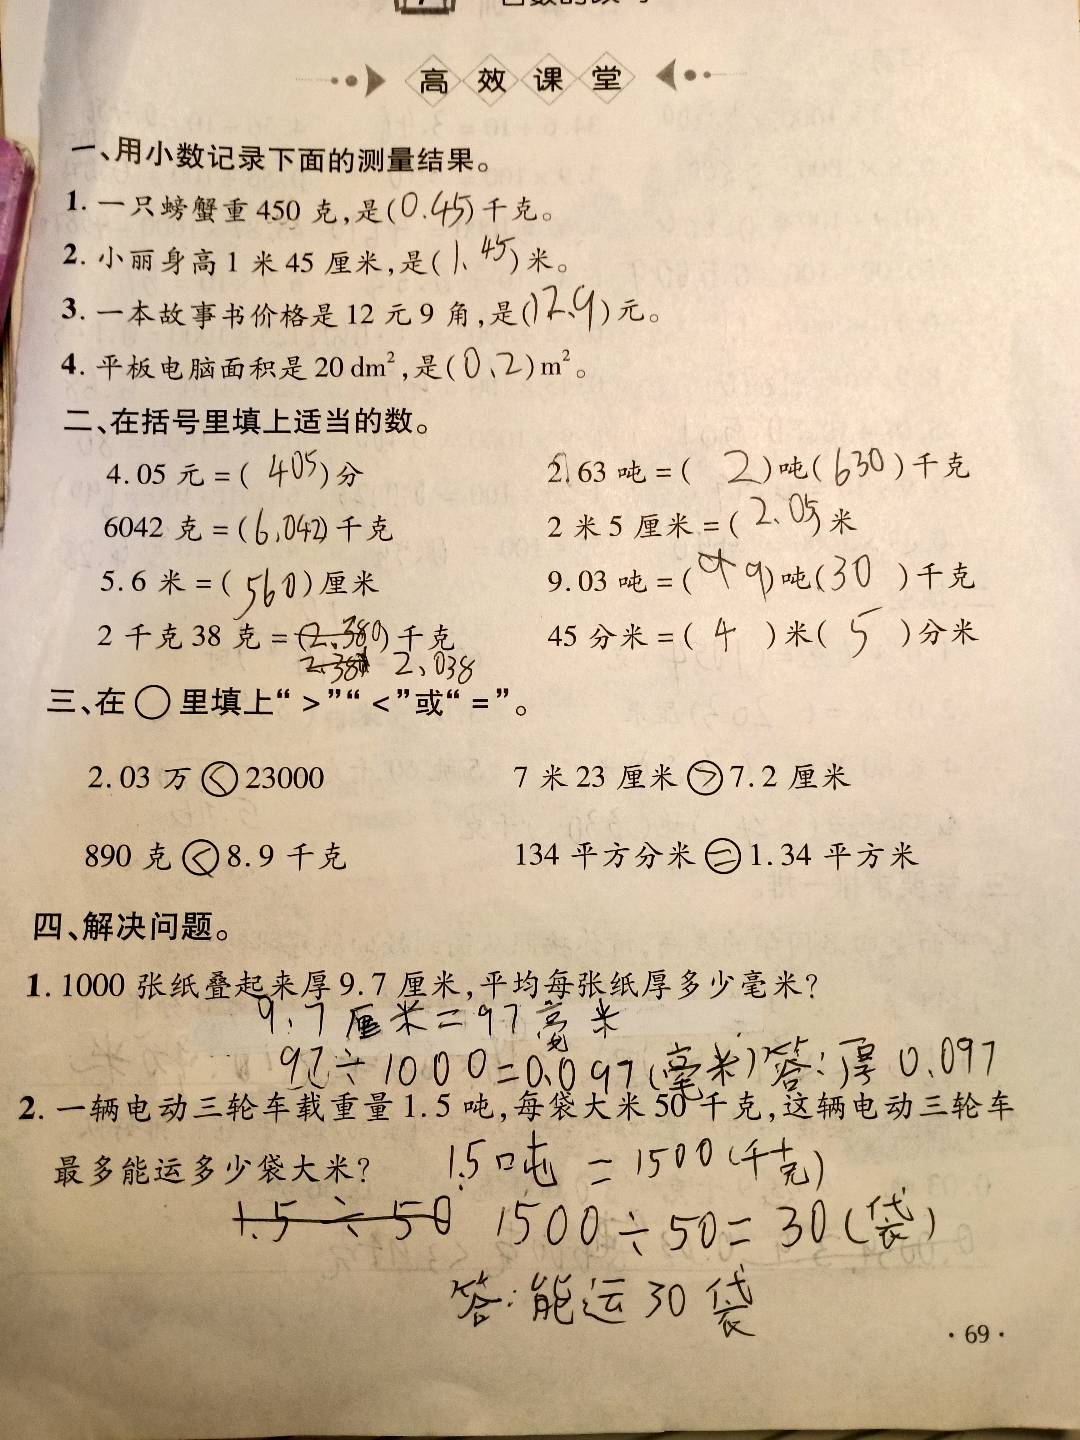 高效课堂
一、用小数记录下面的测量结果。
1. 一只螃蟹重450克,是(0.45)千克。
2. 小丽身高1米45厘米,是(1.45)米。
3. 一本故事书价格是12元9角,是(12.9)元。
4. 平板电脑面积是20 dm²,是(0.2)m²。
二、在括号里填上适当的数。
4.05元=(405)分 2.63吨=(2)吨(630)千克
6042克=(6.042)千克 2米5厘米=(2.05)米
5.6米=(560)厘米 9.03吨=(9)吨(30)千克
2千克38克=(2.380)千克 45分米=(4)米(5)分米
2.38 2.038
三、在○里填上“>”“<”或“=”。
2.03万<23000 7米23厘米>7.2厘米
890克<8.9千克 134平方分米=1.34平方米
四、解决问题。
1. 1000张纸叠起来厚9.7厘米,平均每张纸厚多少毫米?
9.7厘米=97毫米
97÷1000=0.097(毫米)答:厚0.097
2. 一辆电动三轮车载重量1.5吨,每袋大米50千克,这辆电动三轮车
最多能运多少袋大米? 1.5吨=1500(千克)
1.5÷50 1500÷50=30(袋)
答:能运30袋
·69·